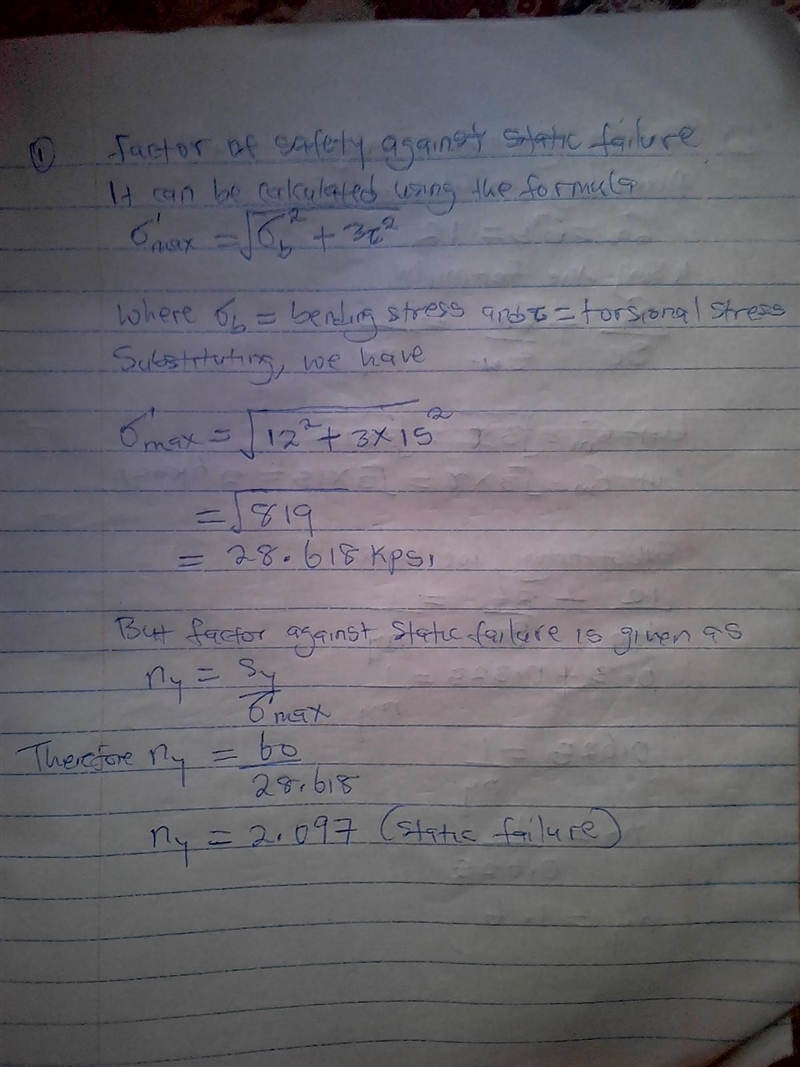 ① factor of safety against static failure
It can be calculated using the formula
σ'max = √σb² + 3τ²
Where σb = bending stress and τ = torsional stress
Substituting, we have
σ'max = √12² + 3×15²
= √819
= 28.618 Kpsi
But factor against static failure is given as
ny = Sy / σ'max
Therefore ny = 60 / 28.618
ny = 2.097 (static failure)